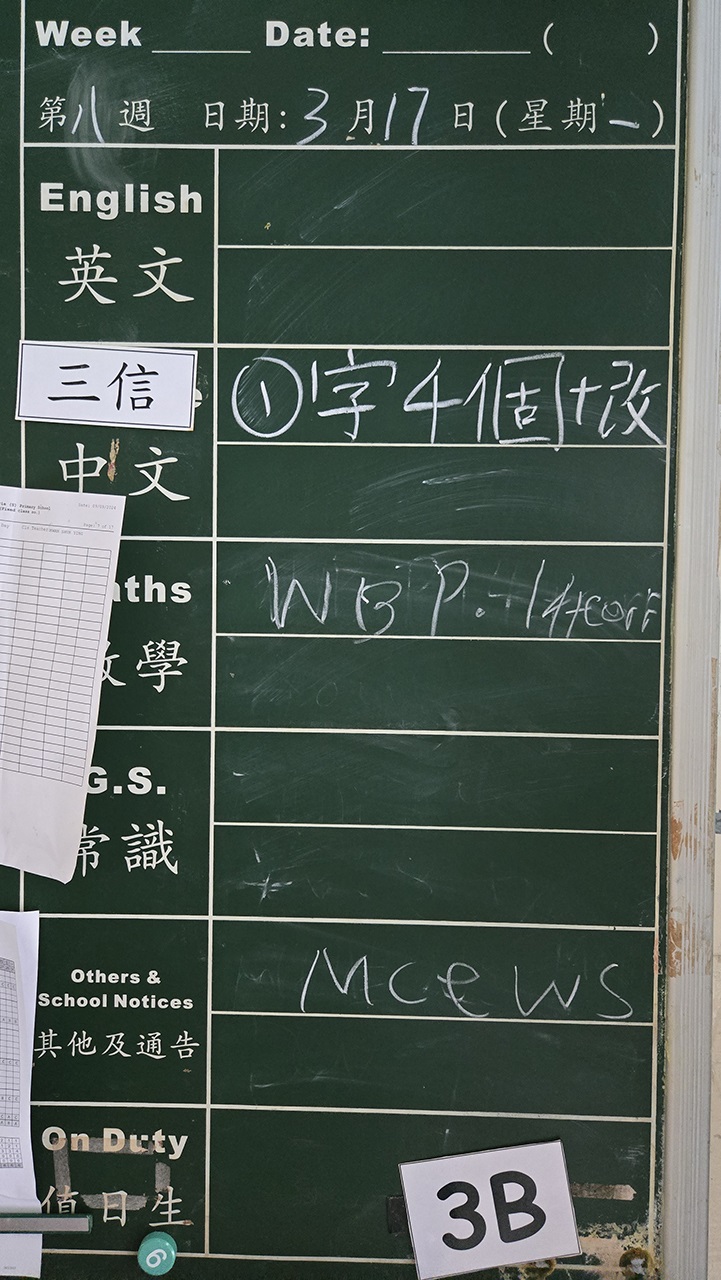 Week ____ Date: ______ ( )
第八週 日期:3月17日(星期一)
English
英文
三信
①字4個+改
中文
ths
WBP.14+corr
學
G.S.
常識
Others &
School Notices
MCE WS
其他及通告
On Duty
值日生
3B
6